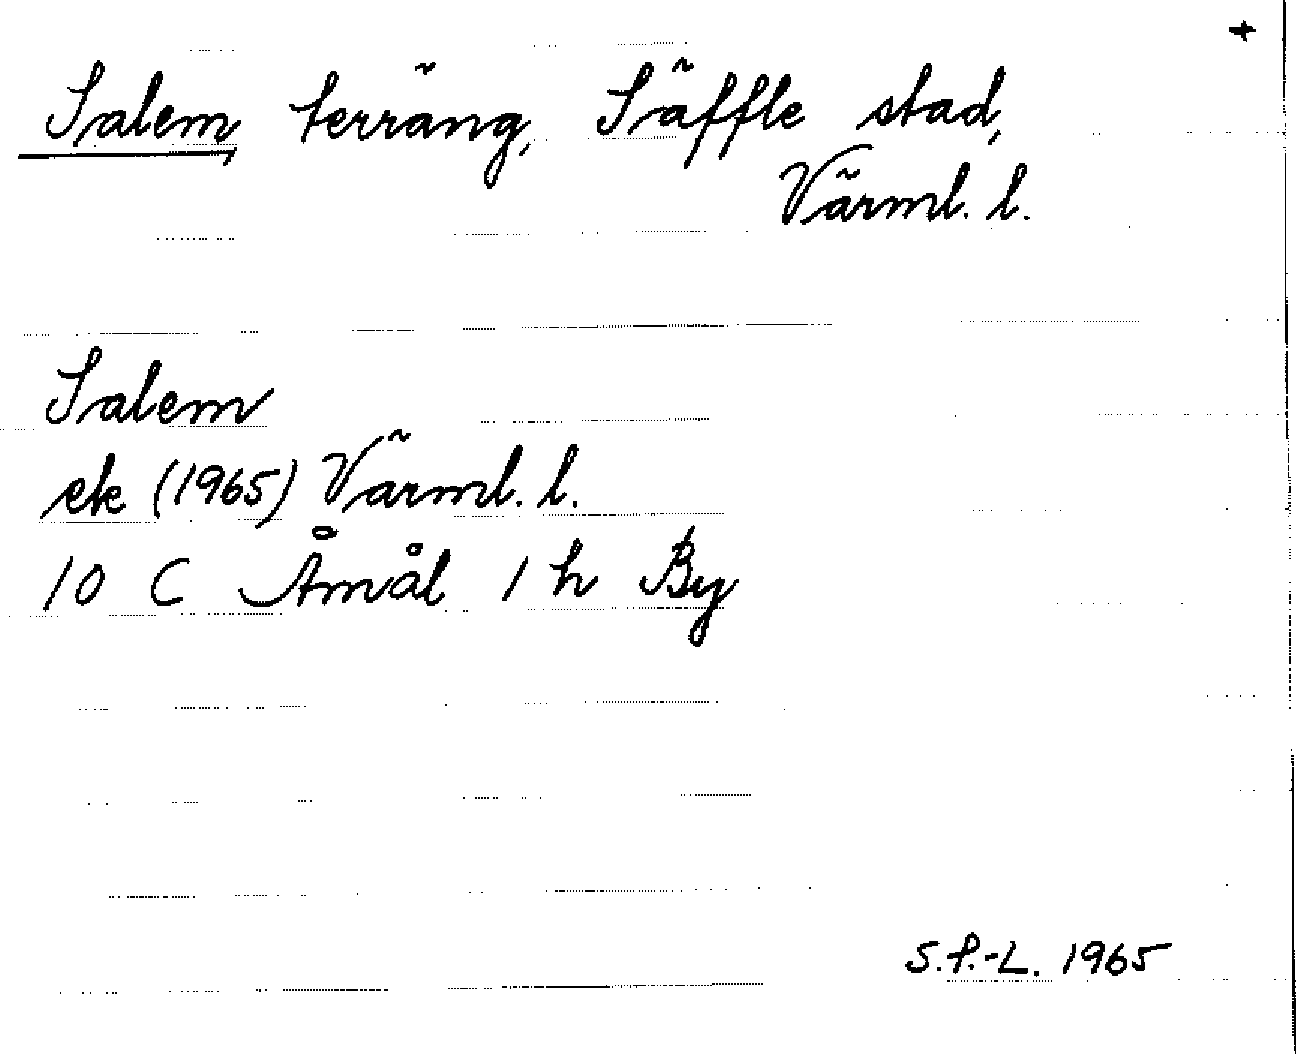 +
Salem, terräng, Säffle stad,
Värml. l.
Salem
ek (1965) Värml. l.
10 C Åmål 1 h By
S.P.-L. 1965